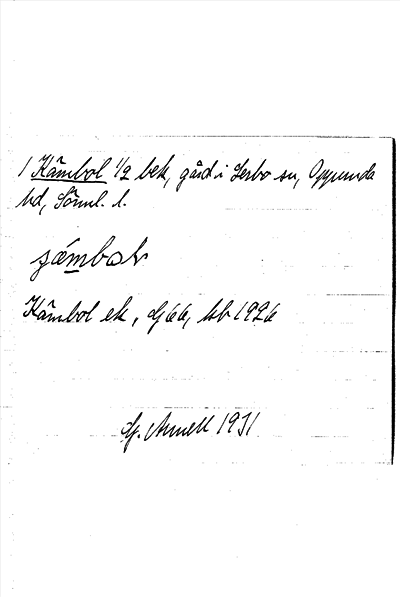 1 Kämbol 1/2 bek, gård i Lerbo sn, Oppunda
hd, Söml. l.
Kämbol ek, dj 66, kb 1926
G. Annell 1931